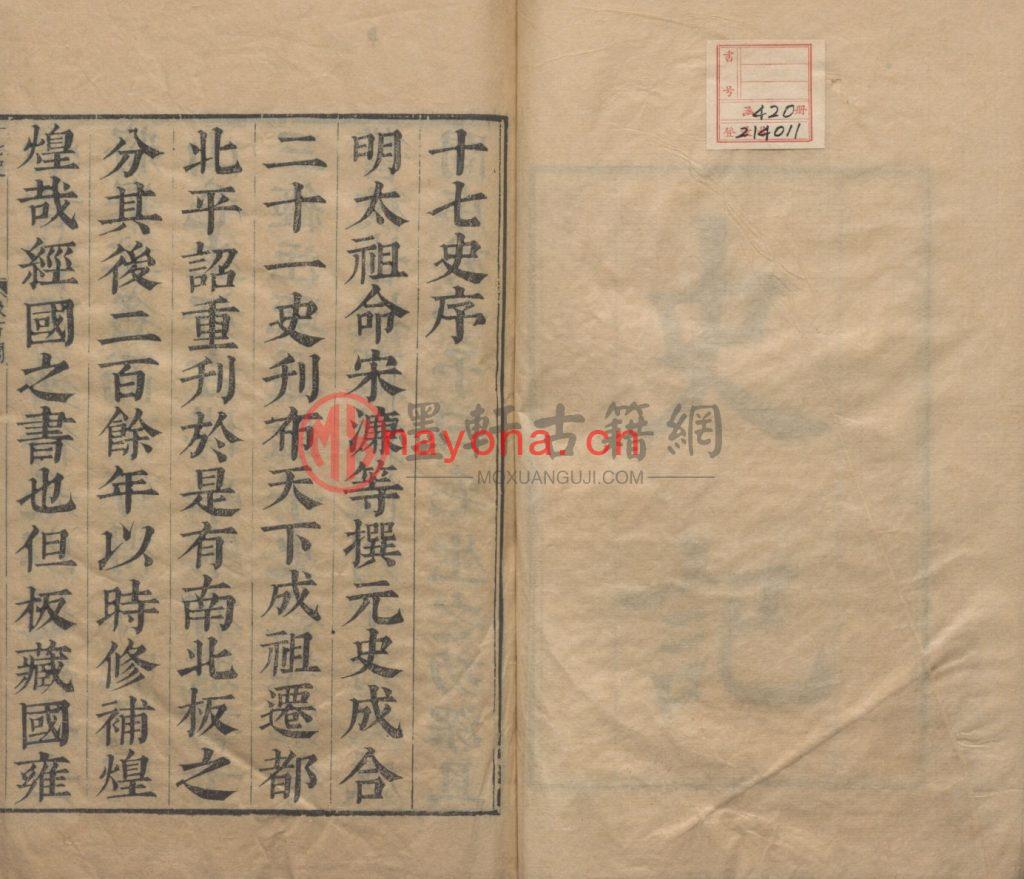 十七史序
明太祖命宋濂等撰元史成合
二十一史刊布天下成祖遷都
北平詔重刊於是有南北板之
分其後二百餘年以時修補煌
煌哉經國之書也但板藏國雍
書号
函420册
登214011
墨軒古籍網
nayona.cn
MOXUANGUJI.COM
史記